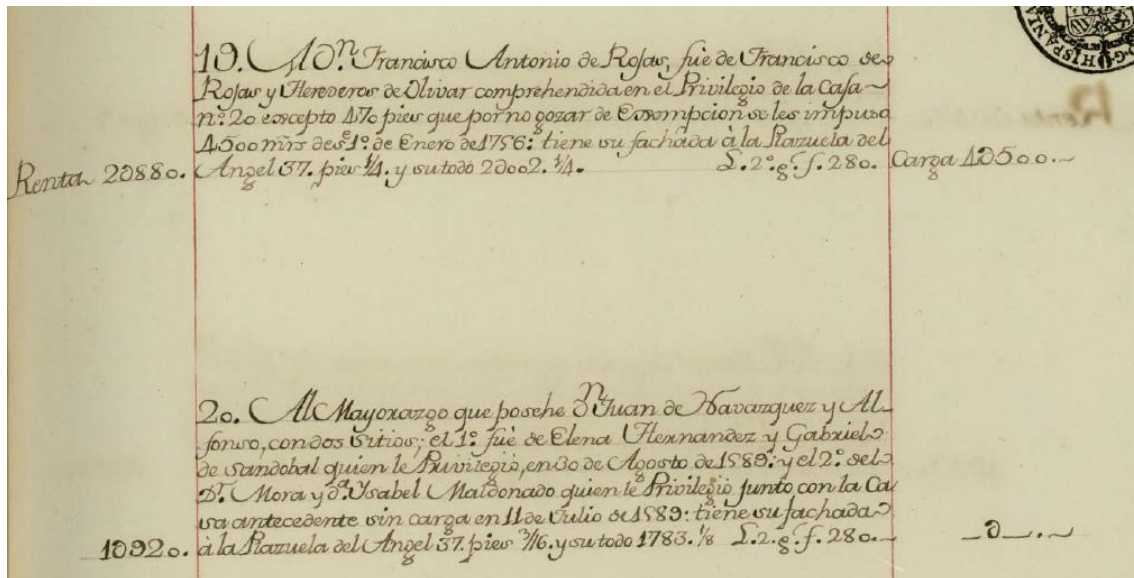 19. A Dn. Francisco Antonio de Rojas, fué de Francisco de
Rojas y Herederos de Olivar comprehendida en el Privilegio de la Casa
nº. 20 excepto 470 pies que por no gozar de Exsempcion se les impuso
4500 mrs desde 1º. de Enero de 1756: tiene su fachada à la Plazuela del
Renta 2D880. Angel 37. pies 1/4. y su todo 2D002. 1/4. L. 2º. g. f. 280. Carga 4D500.
20. Al Mayorazgo que poséhe Dn. Juan de Navazquez y Al-
fonso, con dos sitios; el 1º. fué de Elena Hernandez y Gabriel
de Sandobal quien le Privilegió, en 30 de Agosto de 1589: y el 2º. del
Dr. Mora y Dª. Ysabel Maldonado quien le Privilegió junto con la Ca
sa antecedente sin carga en 11 de Julio de 1589: tiene su fachada
1D920. à la Plazuela del Angel 37. pies 3/16. y su todo 1783. 1/8 L. 2. g. f. 280. D
HISPANIA